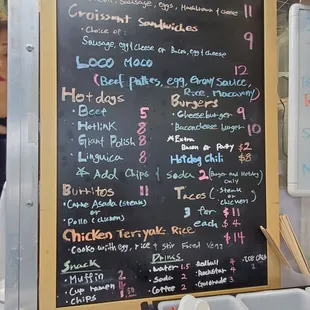 Bacon, Sausage, eggs, Hashbrown & cheese 11
Croissant Sandwiches
• Choice of: 9
Sausage, egg & cheese or Bacon, egg & cheese
LOCO MOCO 12
(Beef patties, egg, Gravy Sauce,
Rice, Macaroni)
Hotdogs
• Beef 5
• Hotlink 8
• Giant Polish 8
• Linguica 8
* Add Chips & Soda 2 (Burger and Hotdog Only)
Burgers
• Cheeseburger 9
• Baconcheese burger 10
*Extra
Bacon or Patty $2
Hotdog Chili $8
Burritos 11
• Carne Asada (steak)
or
Pollo (chicken)
Tacos (Steak or chicken)
3 for $11
each $4
Chicken Teriyaki Rice $14
Cooks with egg, rice & Stir Fried Veg
Snack
• Muffin 2
• Cup ramen
• Chips 1.50
Drinks
• Water 1.50
• Soda 2
• Coffee 2
• Redbull 4
• Rockstar 4
• Gatorade 3